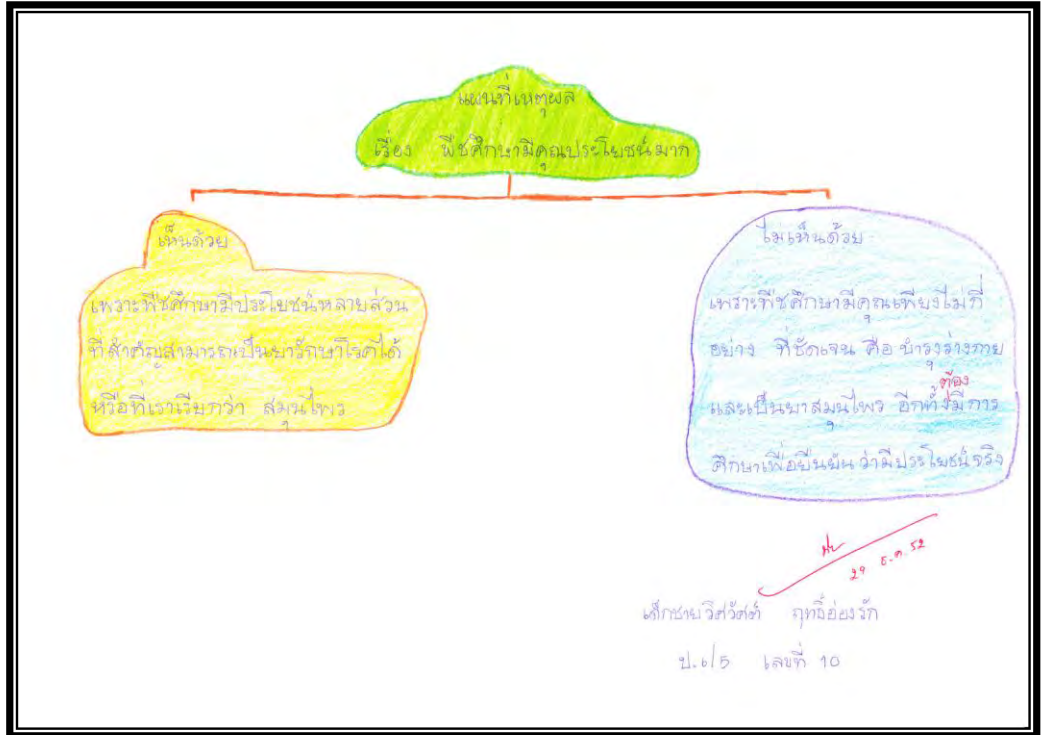 แผนที่เหตุผล
เรื่อง พืชศึกษามีคุณประโยชน์มาก
เห็นด้วย
เพราะพืชศึกษามีประโยชน์หลายส่วน
ที่สำคัญสามารถเป็นยารักษาโรคได้
หรือที่เราเรียกว่า สมุนไพร
ไม่เห็นด้วย
เพราะพืชศึกษามีคุณเพียงไม่กี่
อย่าง ที่ชัดเจน คือ บำรุงร่างกาย
ต้อง
และเป็นยาสมุนไพร อีกทั้งมีการ
ศึกษาเพื่อยืนยันว่ามีประโยชน์จริง
29 ธ.ค. 52
เด็กชายวิศวัศต์ ฤทธิ์อ่องรัก
ป.๖/5 เลขที่ 10